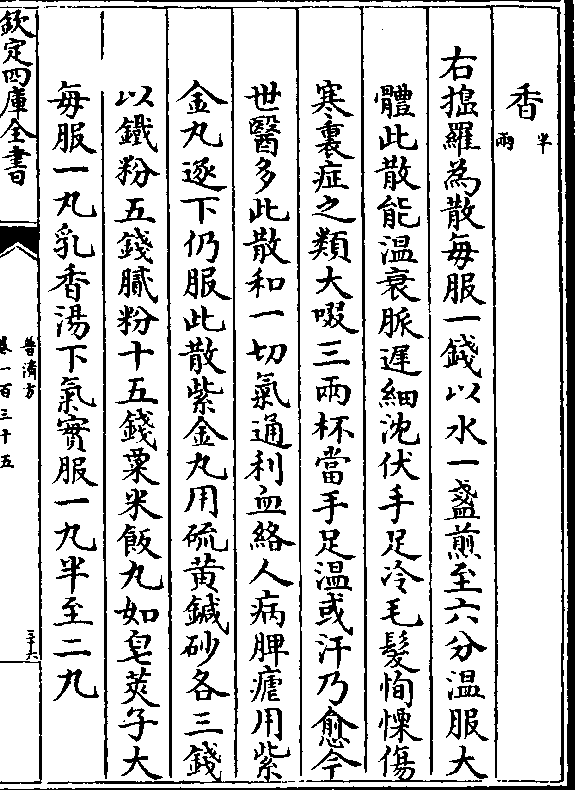 香半兩
右搗羅為散每服一錢以水一盞煎至六分温服大
體此散能温衰脈遲細沈伏手足冷毛髮恂慄傷
寒裏症之類大啜三兩杯當手足温或汗乃愈今
世醫多此散和一切氣通利血絡人病脾瘧用紫
金丸逐下仍服此散紫金丸用硫黄鍼砂各三錢
以鐵粉五錢膩粉十五錢粟米飯丸如皂莢子大
每服一丸乳香湯下氣實服一丸半至二丸
欽定四庫全書
普濟方
卷一百三十五
三十六